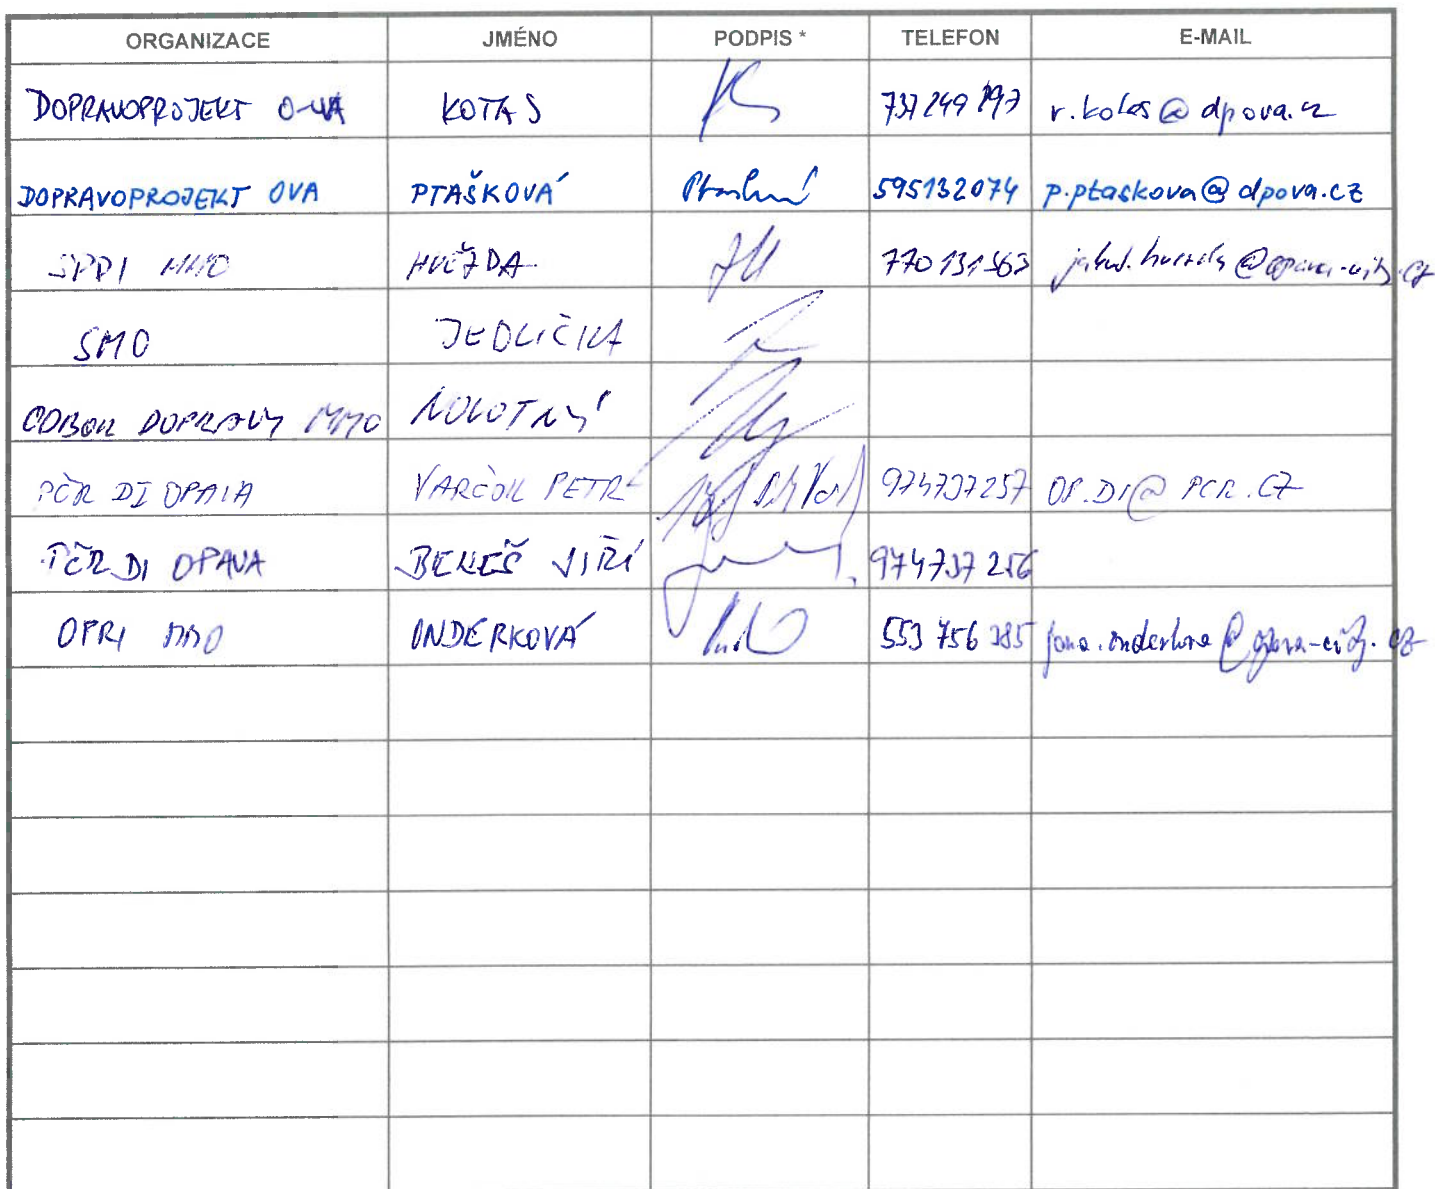 ORGANIZACE JMÉNO PODPIS * TELEFON E-MAIL
DOPRAVOPROJEKT O-VA KOTAS 737249197 r.kotas@dpova.cz
DOPRAVOPROJEKT OVA PTAŠKOVÁ 595132074 p.ptaskova@dpova.cz
MMO HVĚZDA 770131563 jakub.hvezda@opava-city.cz
SMO JEDLIČKA
ODBOR DOPRAVY MMO NOVOTNÝ
PČR DI OPAVA VARČOK PETR 974737257 OP.DI@PCR.CZ
PČR DI OPAVA BENEŠ JIŘÍ 974737256
OPRI MMO ONDERKOVÁ 553 756 385 jana.onderkova@opava-city.cz